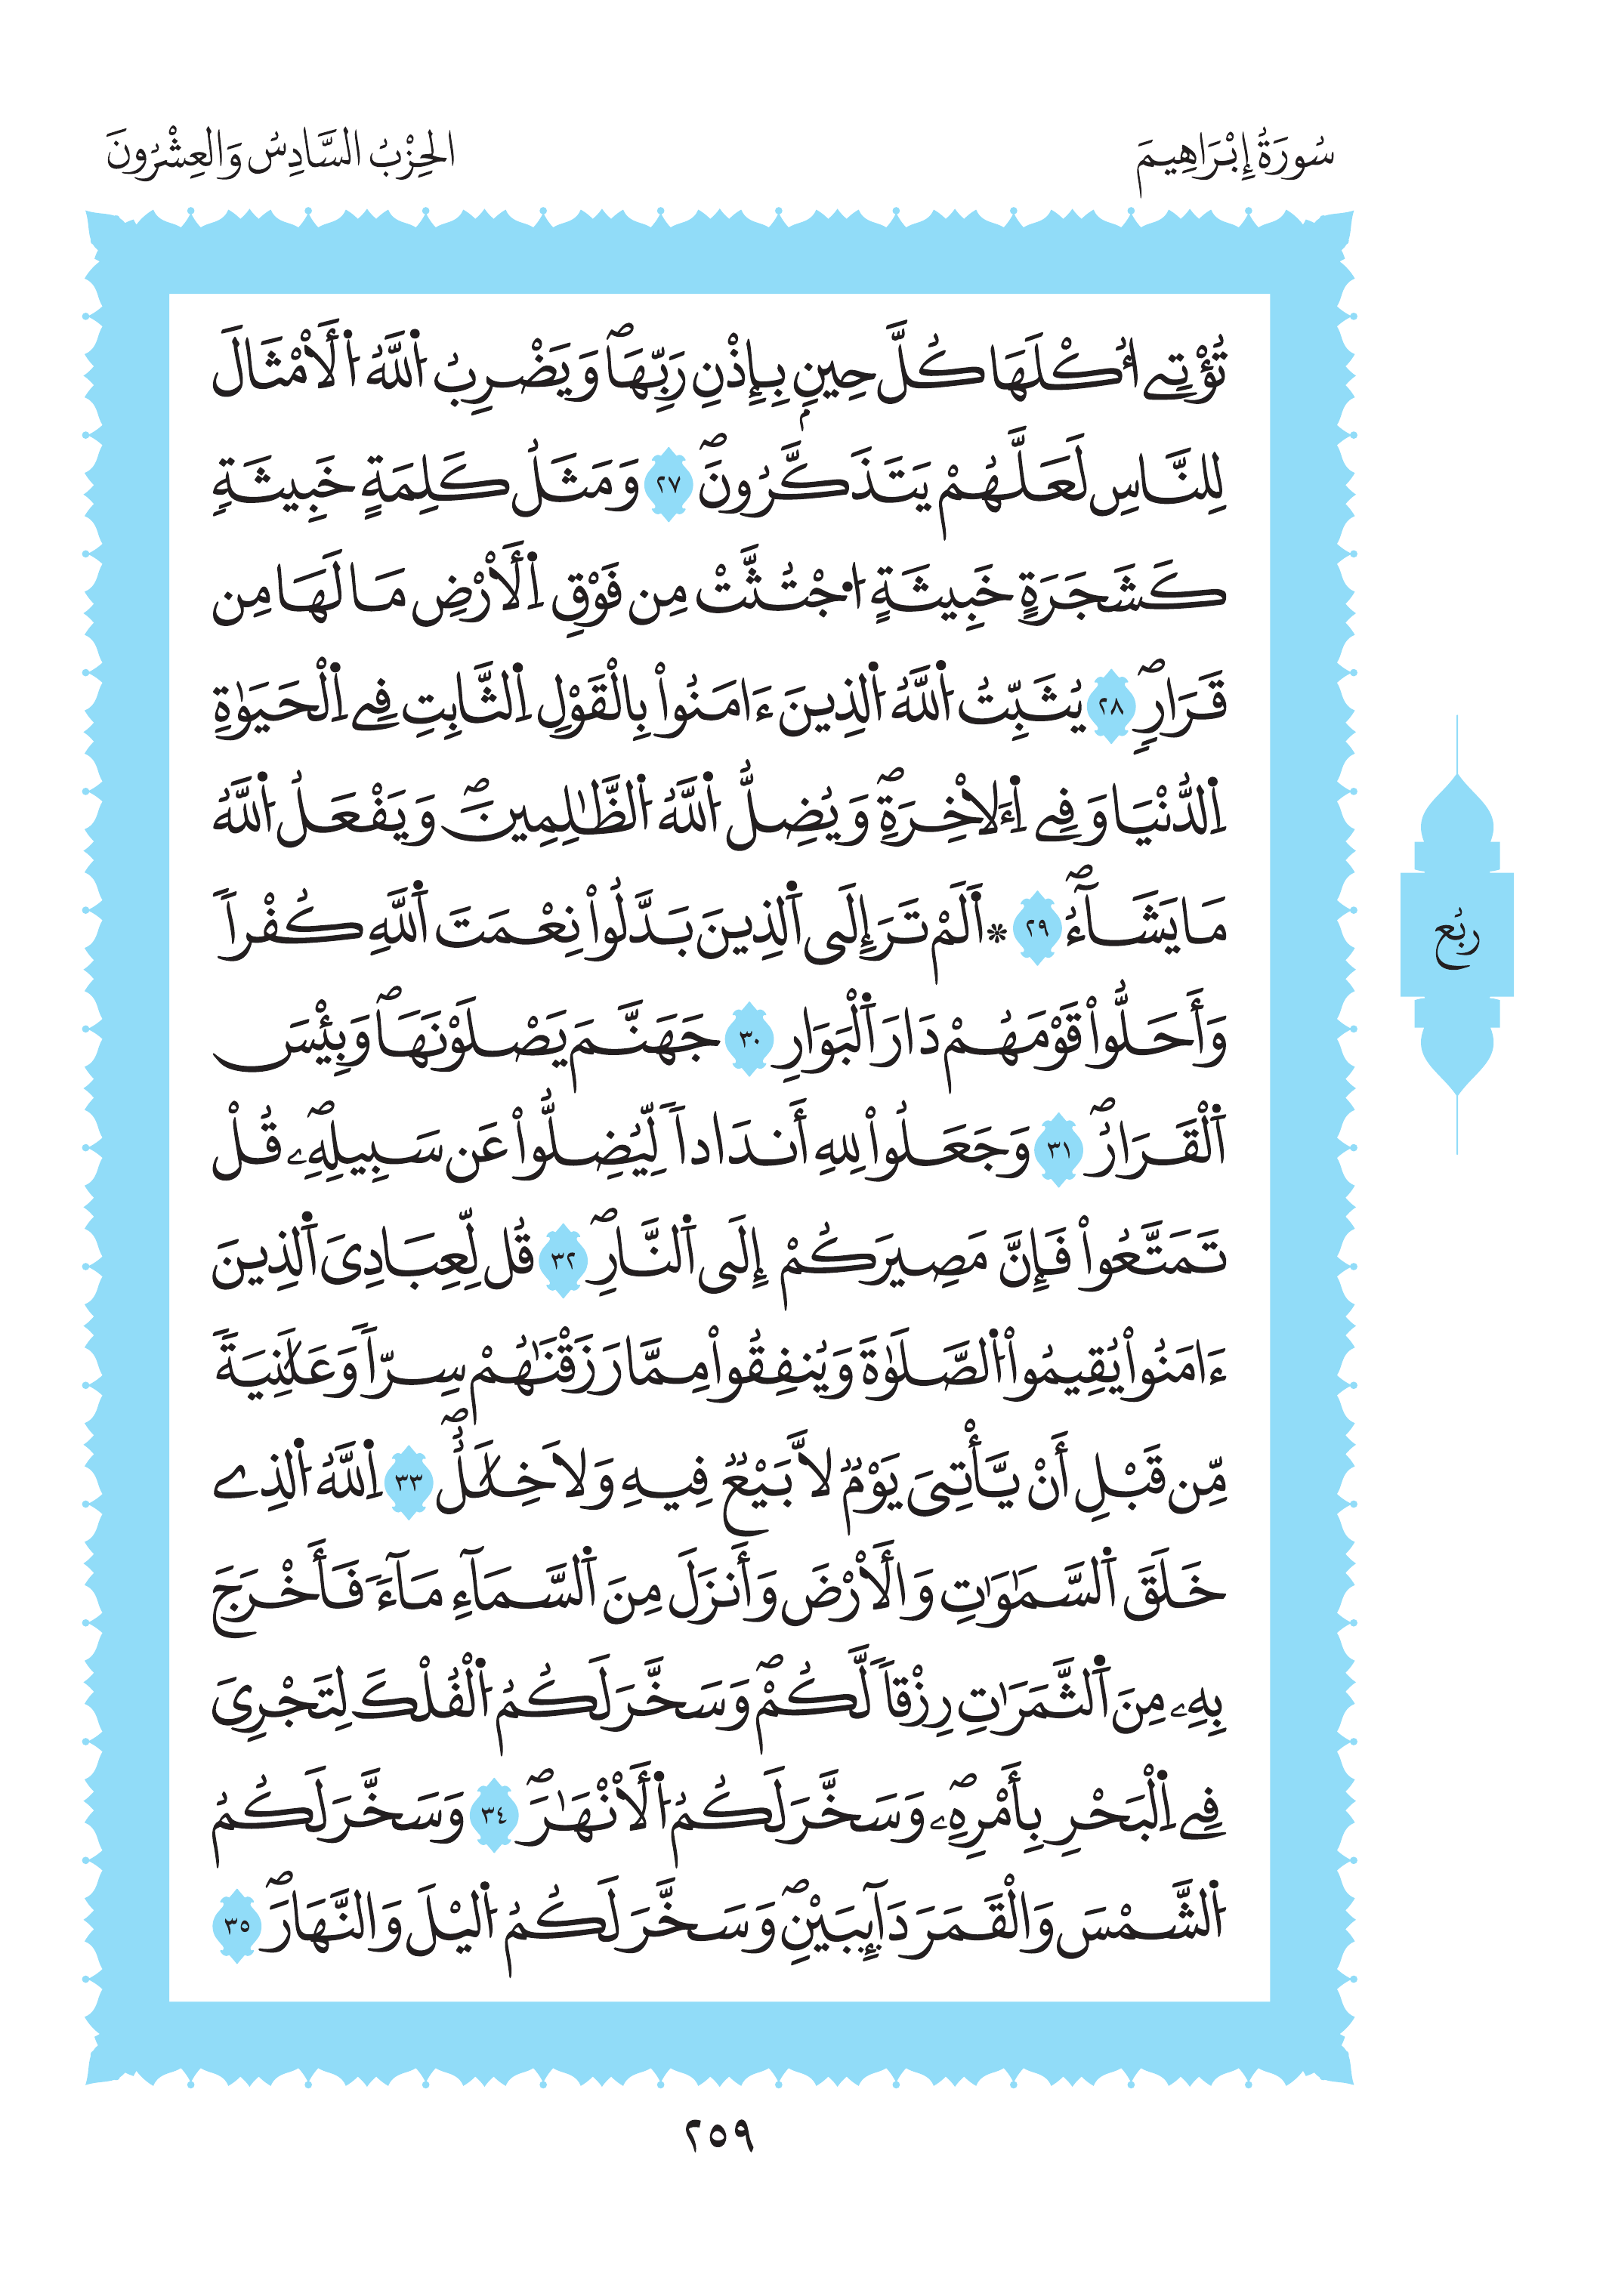 سُورَةُ إِبْرَاهِيمَ
الحِزْبُ السَّادِسُ وَالعِشْرُونَ
تُؤْتِےٓ أُكْلَهَا كُلَّ حِينِۢ بِإِذْنِ رَبِّهَاۖ وَيَضْرِبُ اُ۬للَّهُ اُ۬لَامْثَالَ
لِلنَّاسِ لَعَلَّهُمْ يَتَذَكَّرُونَۖ ٢٧ وَمَثَلُ كَلِمَةٍ خَبِيثَةٖ
كَشَجَرَةٍ خَبِيثَةٍ اُ۟جْتُثَّتْ مِن فَوْقِ اِ۬لَارْضِ مَا لَهَا مِن
قَر۪ارٖۖ ٢٨ يُثَبِّتُ اُ۬للَّهُ اُ۬لذِينَ ءَامَنُواْ بِالْقَوْلِ اِ۬لثَّابِتِ فِے اِ۬لْحَيَوٰةِ
اِ۬لدُّنْيَا وَفِے اِ۬لَاخِرَةِۖ وَيُضِلُّ اُ۬للَّهُ اُ۬لظَّٰلِمِينَۖ وَيَفْعَلُ اُ۬للَّهُ
مَا يَشَآءُۖ ٢٩ ۞ أَلَمْ تَرَ إِلَى اَ۬لذِينَ بَدَّلُواْ نِعْمَتَ اَ۬للَّهِ كُفْراٗ
وَأَحَلُّواْ قَوْمَهُمْ دَارَ اَ۬لْبَوَارِ ٣٠ جَهَنَّمَ يَصْلَوْنَهَاۖ وَبِئْسَ
اَ۬لْقَرَارُۖ ٣١ وَجَعَلُواْ لِلهِ أَندَاداٗ لِّيُضِلُّواْ عَن سَبِيلِهِۦۖ قُلْ
تَمَتَّعُواْ فَإِنَّ مَصِيرَكُمْ إِلَى اَ۬لنَّارِۖ ٣٢ قُل لِّعِبَادِىَ اَ۬لذِينَ
ءَامَنُواْ يُقِيمُواْ اُ۬لصَّلَوٰةَ وَيُنفِقُواْ مِمَّا رَزَقْنَٰهُمْ سِرّاٗ وَعَلَٰنِيَةٗ
مِّن قَبْلِ أَنْ يَّأْتِىَ يَوْمٞ لَّا بَيْعٞ فِيهِ وَلَا خِلَٰلٌۖ ٣٣ اِ۬للَّهُ اُ۬لذِے
خَلَقَ اَ۬لسَّمَٰوَٰتِ وَالَارْضَ وَأَنزَلَ مِنَ اَ۬لسَّمَآءِ مَآءٗ فَأَخْرَجَ
بِهِۦ مِنَ اَ۬لثَّمَرَٰتِ رِزْقاٗ لَّكُمْۖ وَسَخَّرَ لَكُمُ اُ۬لْفُلْكَ لِتَجْرِىَ
فِے اِ۬لْبَحْرِ بِأَمْرِهِۦۖ وَسَخَّرَ لَكُمُ اُ۬لَانْهَٰرَۖ ٣٤ وَسَخَّرَ لَكُمُ
اُ۬لشَّمْسَ وَالْقَمَرَ دَآئِبَيْنِۖ وَسَخَّرَ لَكُمُ اُ۬ليْلَ وَالنَّهَارَۖ ٣٥
رُبُع
٢٥٩